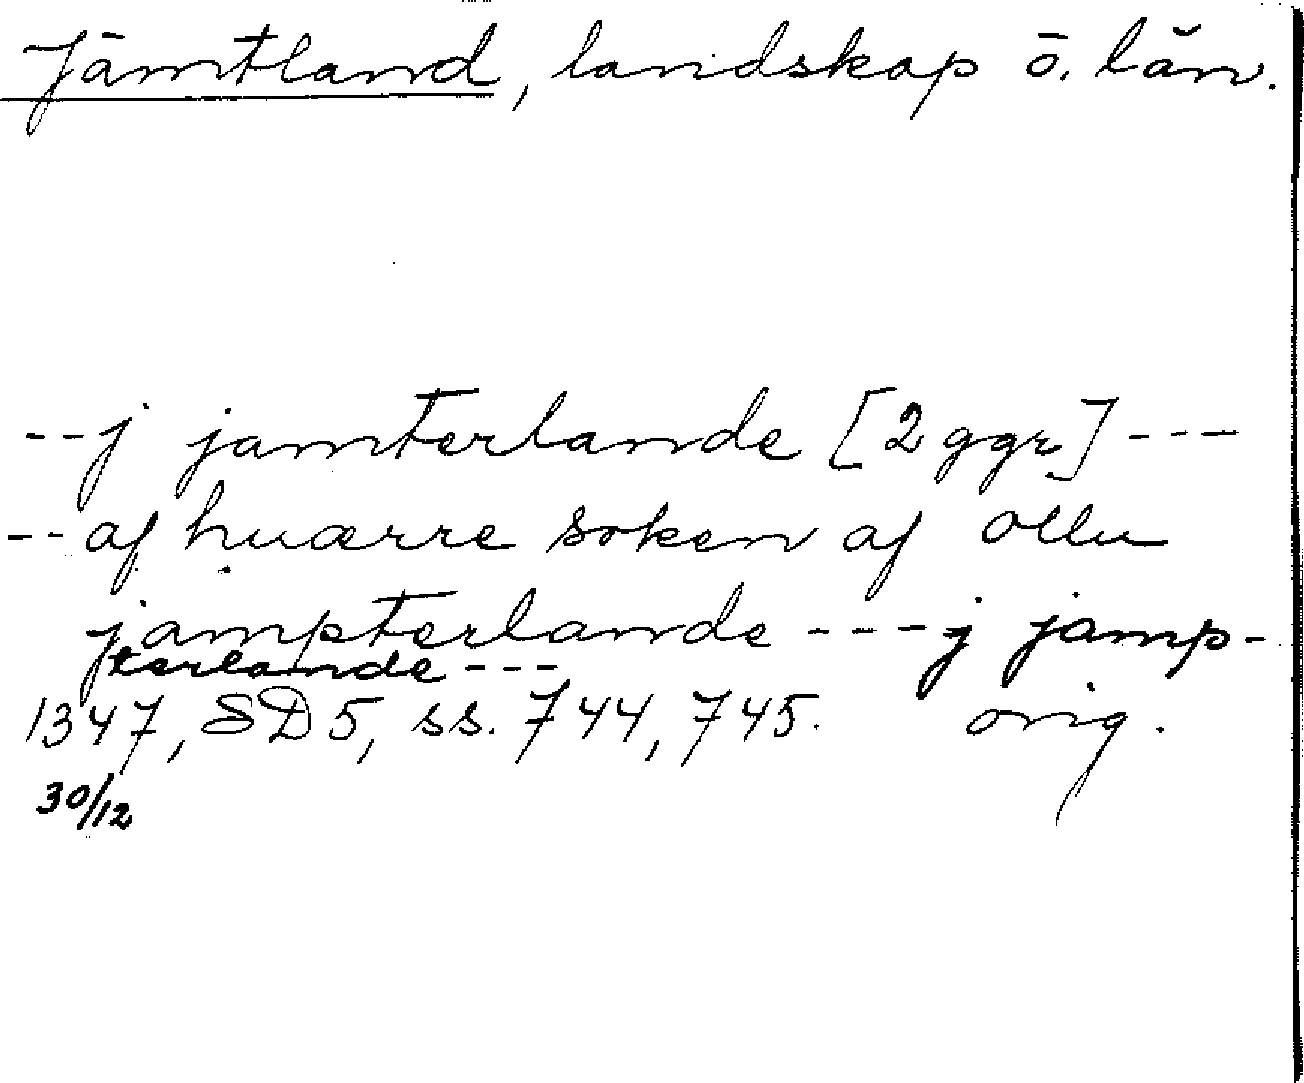 Jämtland, landskap ö. län.
--j jamterlande [2 ggr] ---
--af huærre soken af ollu
jampterlande --- j jamp-
terlande ---
1347, SD 5, ss. 744, 745. orig.
30/12